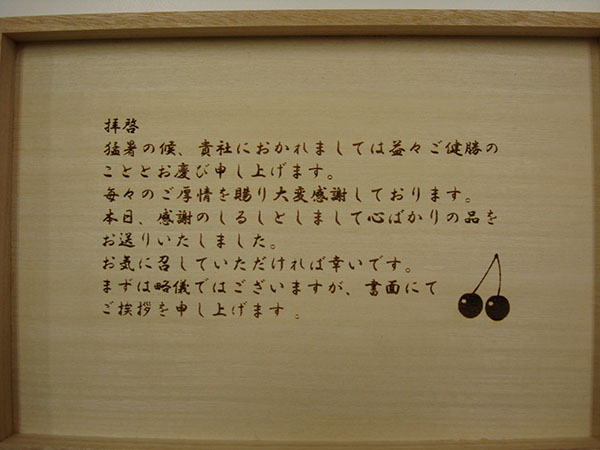 拝啓
猛暑の候、貴社におかれましては益々ご健勝の
こととお慶び申し上げます。
毎々のご厚情を賜り大変感謝しております。
本日、感謝のしるしとしまして心ばかりの品を
お送りいたしました。
お気に召していただければ幸いです。
まずは略儀ではございますが、書面にて
ご挨拶を申し上げます。